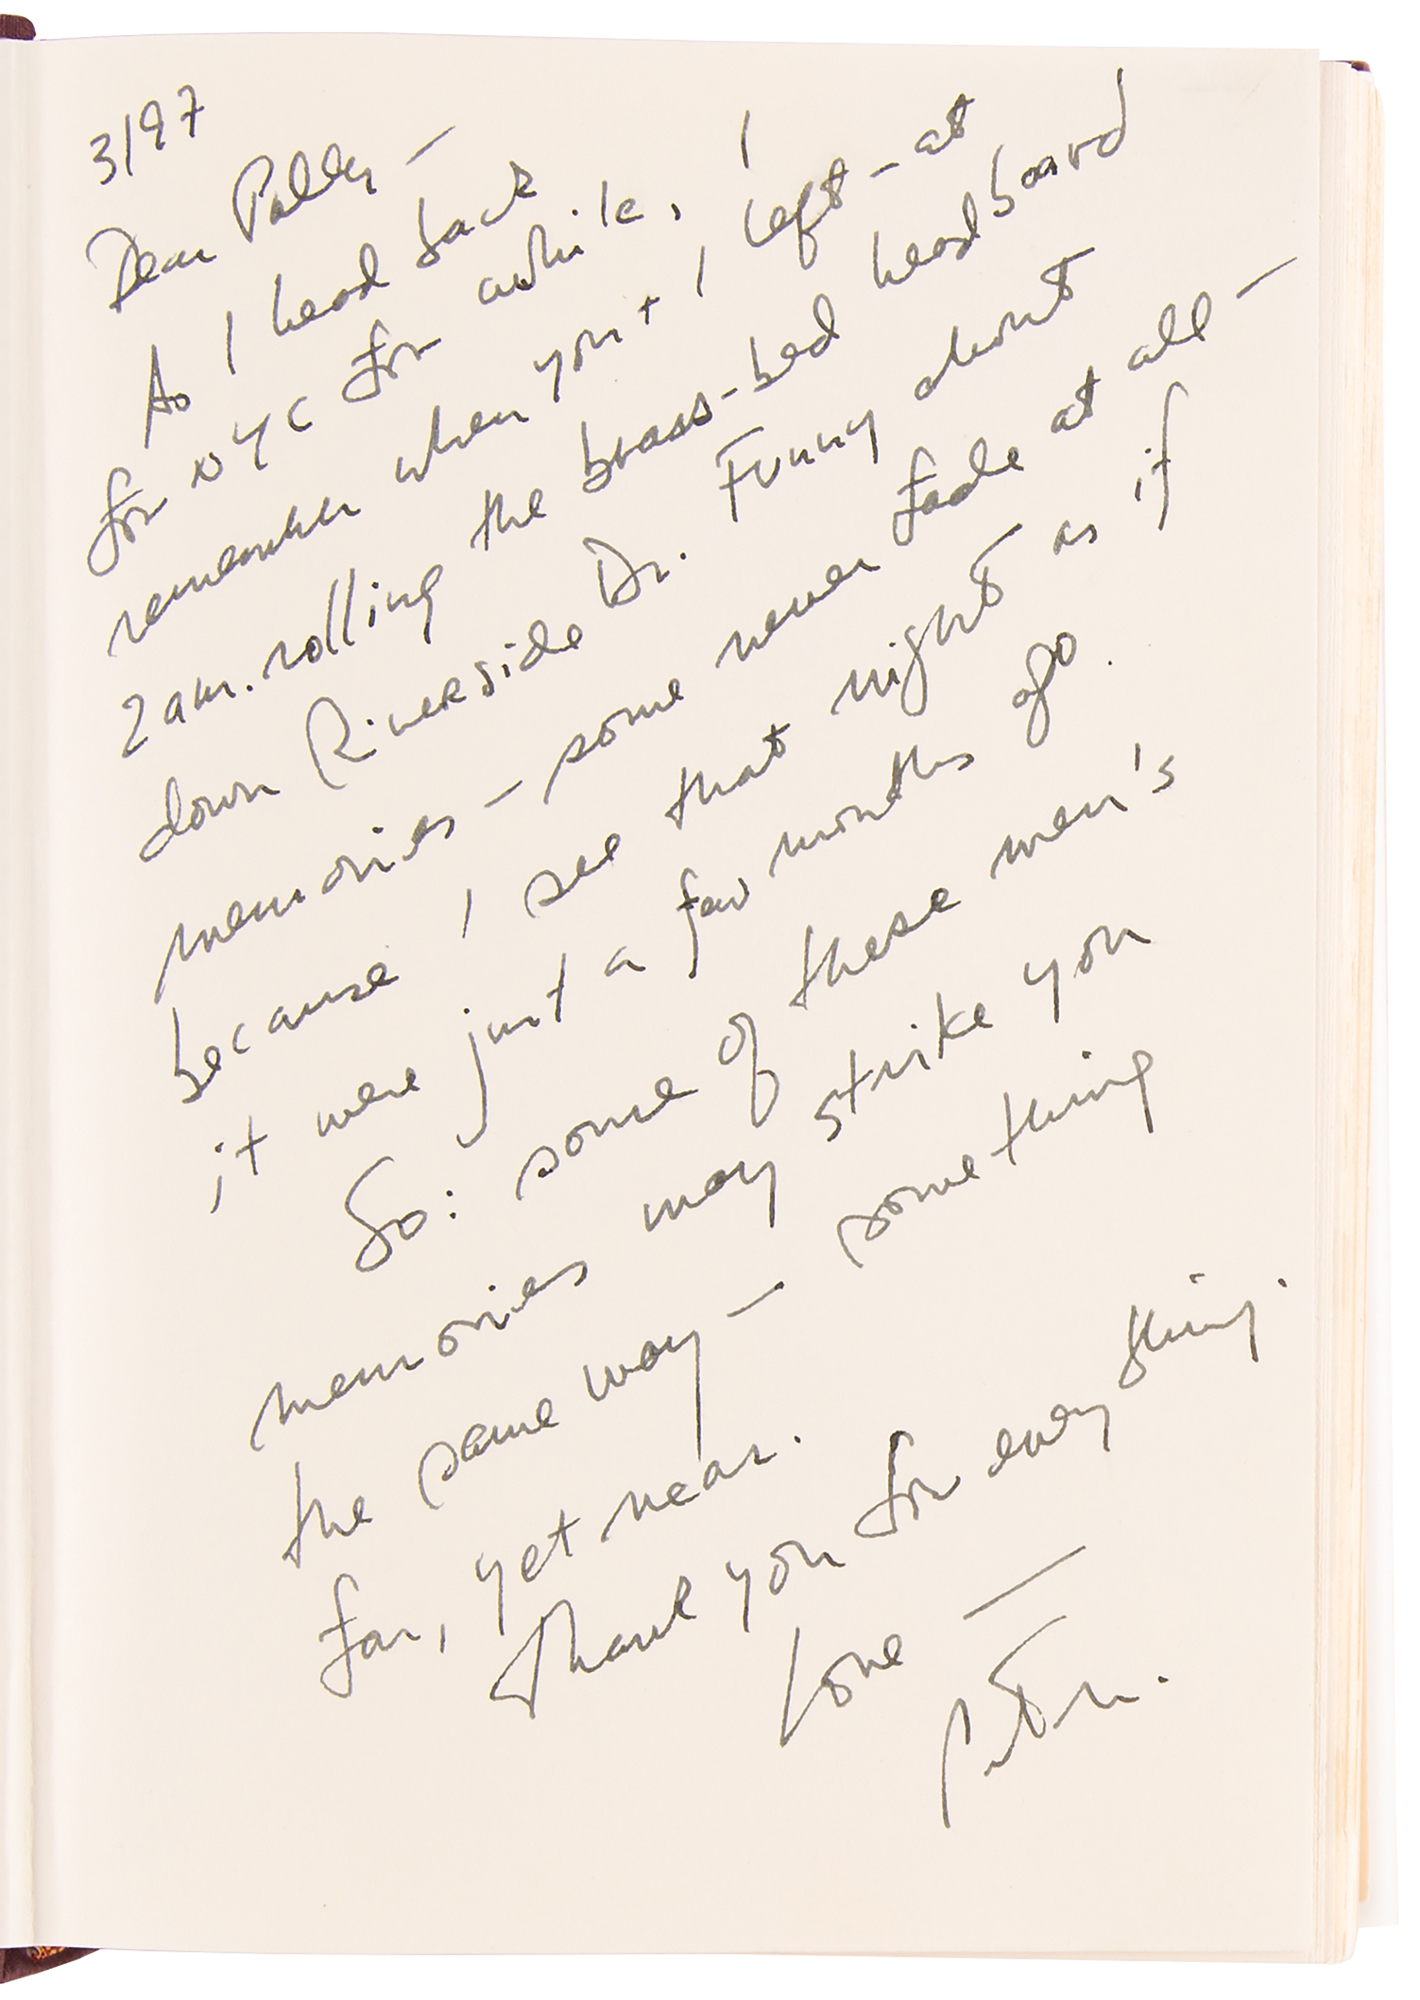 3/97
Dear Polly —
As I head back
for NYC for awhile, I
remember when you + I left — at
2 am. rolling the brass-bed headboard
down Riverside Dr. Funny about
memories — some never fade at all —
because I see that night as if
it were just a few months ago.
So: some of these men's
memories may strike you
the same way — something
far, yet near.
Thank you for everything.
Love —
Peter.